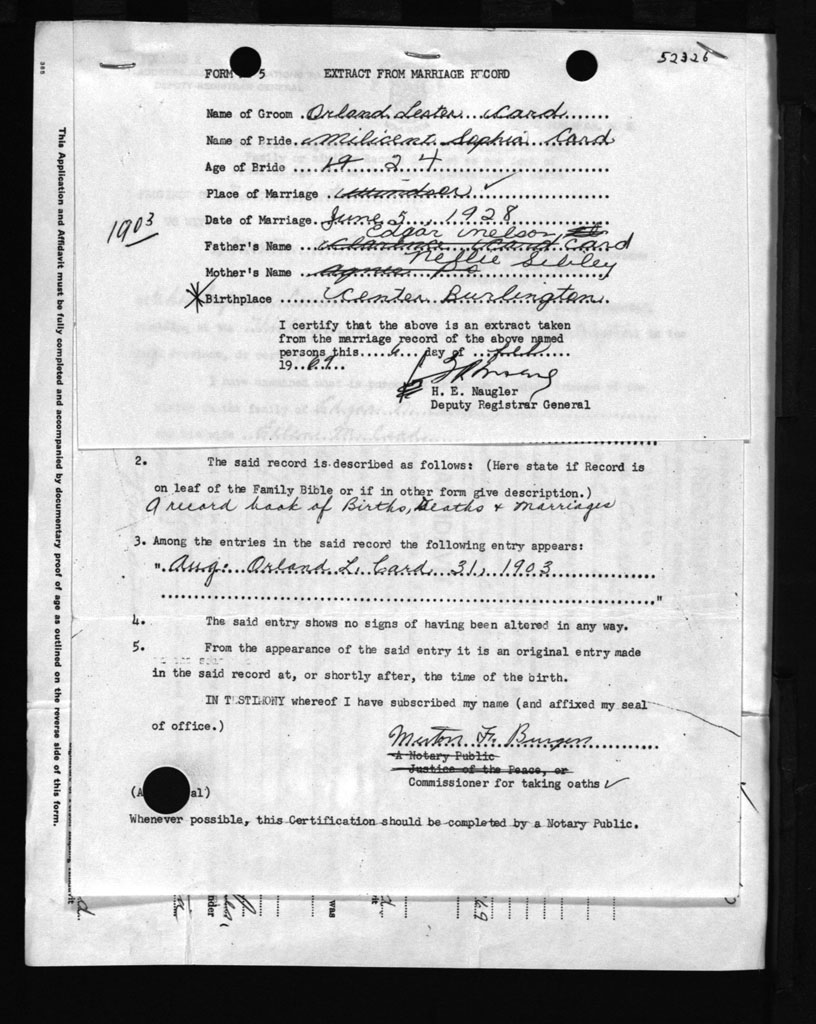 52326
FORM 5 EXTRACT FROM MARRIAGE RECORD
Name of Groom . Orland Lester Card
Name of Bride . Milicent Sophia Card
Age of Bride ... 19 24
Place of Marriage . Windsor ✓
Date of Marriage. June 5, 1928
1903
Edgar Nelson
Father's Name .. Clarence Card Card
Nellie Sibley
Mother's Name .. Agnes
Birthplace .... Center Burlington
I certify that the above is an extract taken
from the marriage record of the above named
persons this.... 6 .day of .. Feb
19.69..
H. E. Naugler
Deputy Registrar General
2. The said record is described as follows: (Here state if Record is
on leaf of the Family Bible or if in other form give description.)
A record book of Births, Deaths & Marriages
3. Among the entries in the said record the following entry appears:
". Aug. Orland L. Card 31, 1903
"
4. The said entry shows no signs of having been altered in any way.
5. From the appearance of the said entry it is an original entry made
in the said record at, or shortly after, the time of the birth.
IN TESTIMONY whereof I have subscribed my name (and affixed my seal
of office.)
Merton F. Burgess
A Notary Public
Justice of the Peace, or
Commissioner for taking oaths ✓
(A al)
Whenever possible, this Certification should be completed by a Notary Public.
This Application and Affidavit must be fully completed and accompanied by documentary proof of age as outlined on the reverse side of this form.
nder
was